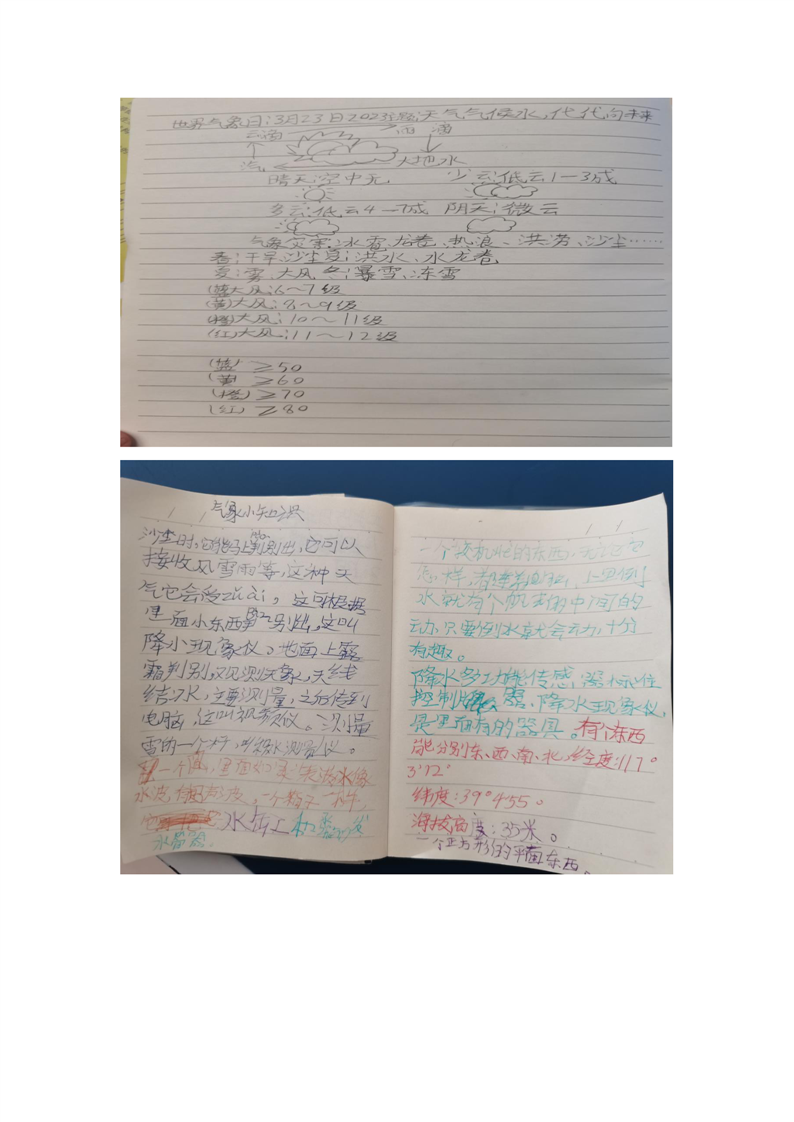 世界气象日:3月23日2023主题:天气气候水,代代向未来
云海 雨滴
汽 大地水
晴天:空中无 少云:低云1一3成
多云:低云4一7成 阴天:微云
气象灾害:冰雹、龙卷、热浪、洪涝、沙尘……
春:干旱、沙尘夏:洪水、水龙卷
雾、大风冬:暴雪、冻雪
(蓝)大风:6～7级
(黄)大风:8～9级
(橙)大风:10～11级
(红)大风:11～12级
(蓝) ≥50
(黄) ≥60
(橙) ≥70
(红) ≥80
气象小知识
沙尘时,它能马上判别出,它可以
接收风雪雨等,这种天
气它会受zāi,这可根据
里面小东西 别出,这叫
降水现象仪。地面上露
霜判别,观测天象,天线
结冰,主要测量,之后传到
电脑,这叫视频仪。测量
雪的一个 ,叫积水测量仪。
一个 ,里面如果
水波, 超声波,一个箱子
水
水管
一个 的东西,无论它
怎样,都 ,上里倒
水就有个 的中间的
动,只要倒水就会动,十分
有趣。
降水多功能传感,
控制 器,降水现象仪,
是里面有的器具。有个东西
能分别东、西、南、北,经度:117°
3′12″
纬度:39°455。
海拔高度:35米。
一个正方形的平面东西。